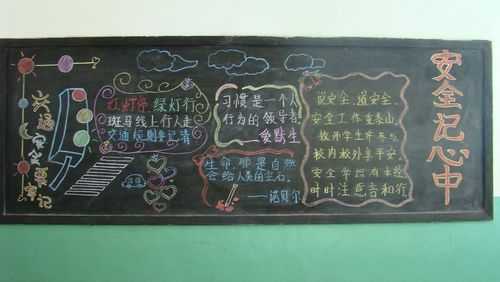 安全记心中
交通安全要牢记
红灯停 绿灯行
斑马线上行人走
交通规则要记清
习惯是一个人
行为的领导者
爱默生
生命,那是自然
会给人类的宝石。
——诺贝尔
说安全、道安全、
安全工作重泰山
校内校外享平安。
时时注意